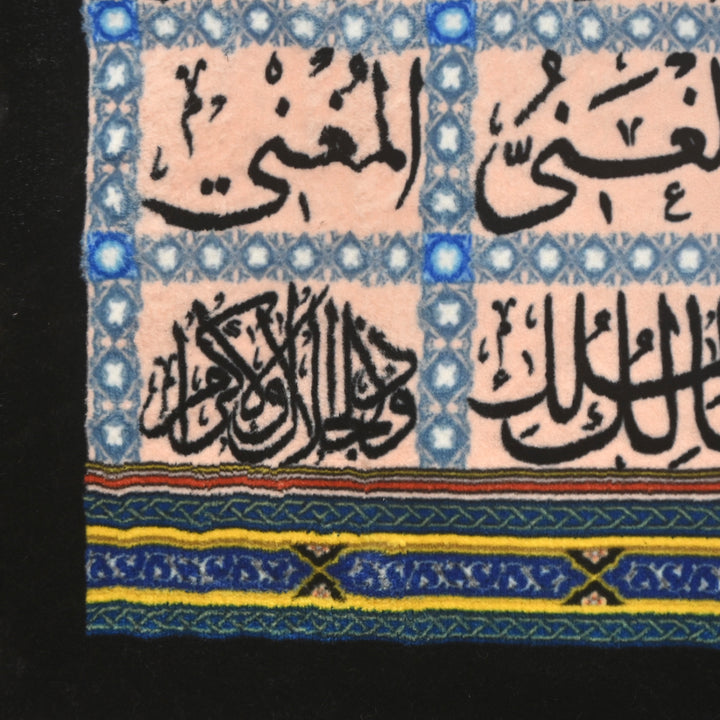 لغَنيُّ المُغْنِي
مَالِكُ المُلك ذو الجلال والإكرام